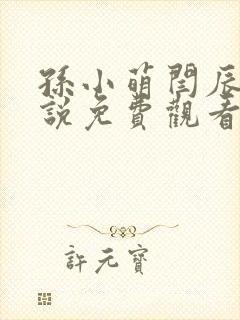 孫小萌閆辰
說免費觀看
許元寶